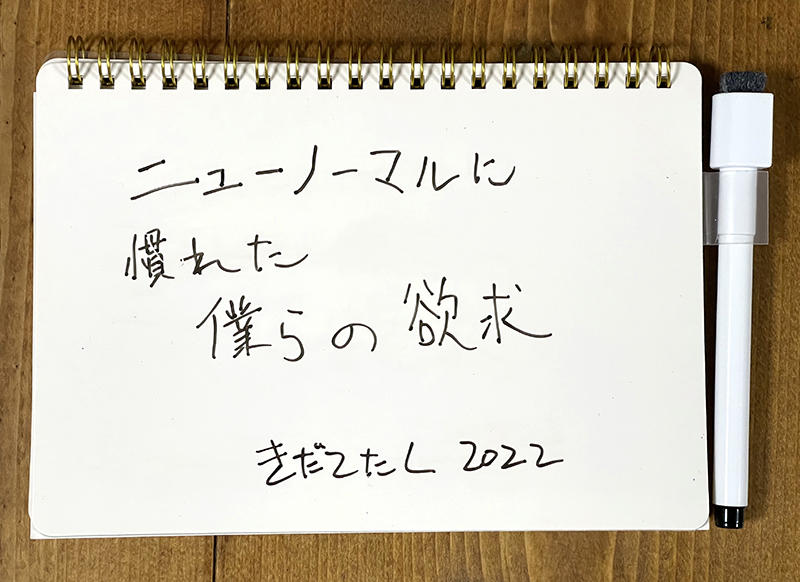 ニューノーマルに
慣れた
僕らの欲求
きだてたく 2022